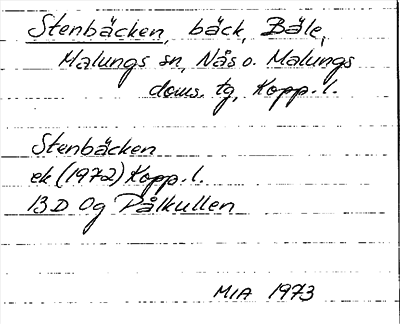 Stenbäcken, bäck, Bäle,
Malungs sn, Nås o. Malungs
doms. tg, Kopp. l.
Stenbäcken
ek (1972) Kopp. l.
13D 0g Pålkullen
MIA 1973